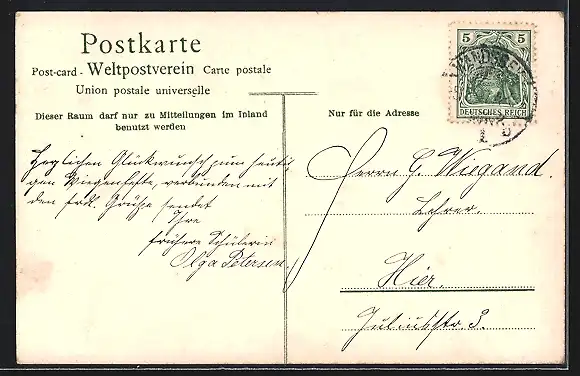 Postkarte
Post-card - Weltpostverein Carte postale
Union postale universelle
Dieser Raum darf nur zu Mitteilungen im Inland
benutzt werden
Nur für die Adresse
5 5
DEUTSCHES REICH
WANDSBE
Herzlichen Glückwunsch zum heuti-
gen Wiegenfeste, verbunden mit
den frdl. Grüße sendet
Ihre
frühere Schülerin
Olga Petersen.
Herrn G. Wiegand.
Lehrer.
Hier.
Juliusstr 3.